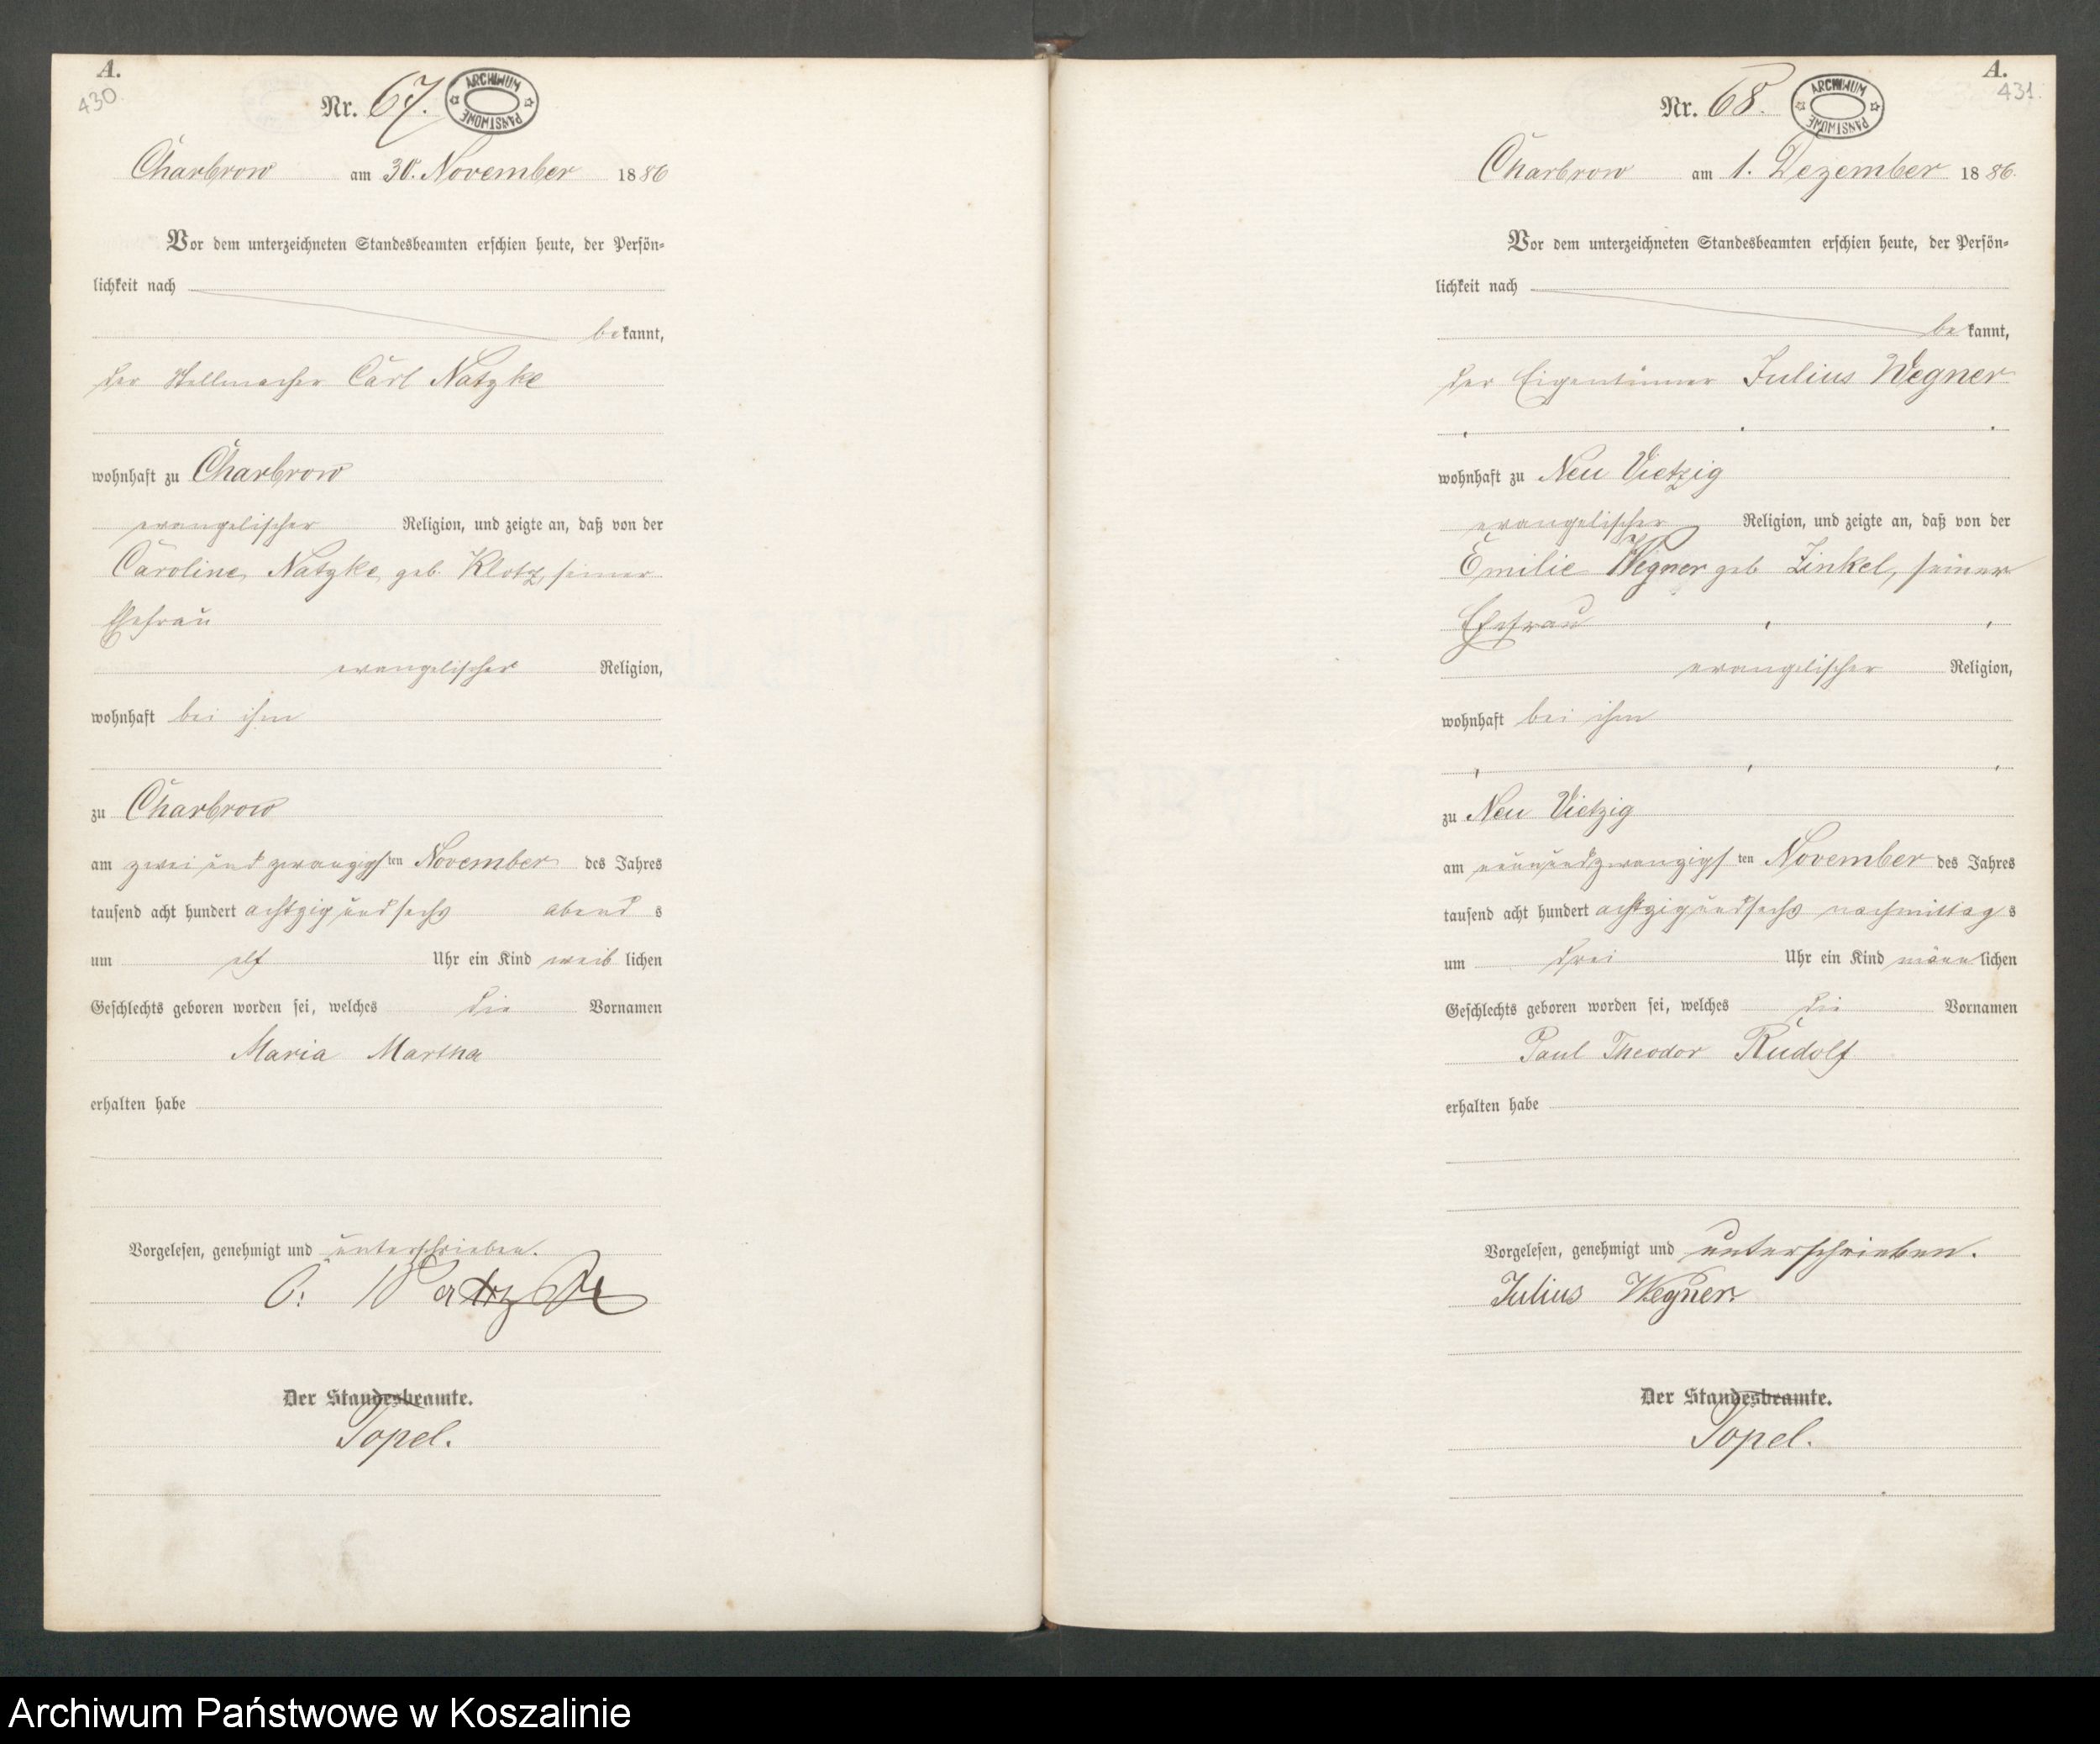 A.
430
Nr. 67.
ARCHIWUM PAŃSTWOWE
Charbrow am 30. November 1886
Vor dem unterzeichneten Standesbeamten erschien heute, der Persön-
lichkeit nach
bekannt,
der Stellmacher Carl Natzke
wohnhaft zu Charbrow
evangelischer Religion, und zeigte an, daß von der
Caroline Natzke geb. Klotz, seiner
Ehefrau
evangelischer Religion,
wohnhaft bei ihm
zu Charbrow
am zwei und zwanzigsten November des Jahres
tausend acht hundert achtzig und sechs abends
um elf Uhr ein Kind weiblichen
Geschlechts geboren worden sei, welches die Vornamen
Maria Martha
erhalten habe
Vorgelesen, genehmigt und unterschrieben.
C: Natzke
Der Standesbeamte.
Topel.
A.
431.
Nr. 68.
ARCHIWUM PAŃSTWOWE
Charbrow am 1. Dezember 1886.
Vor dem unterzeichneten Standesbeamten erschien heute, der Persön-
lichkeit nach
bekannt,
der Eigentümer Julius Wegner
wohnhaft zu Neu Vietzig
evangelischer Religion, und zeigte an, daß von der
Emilie Wegner geb Zinkel, seiner
Ehefrau
evangelischer Religion,
wohnhaft bei ihm
zu Neu Vietzig
am neunundzwanzigsten November des Jahres
tausend acht hundert achtzig und sechs nachmittags
um drei Uhr ein Kind männlichen
Geschlechts geboren worden sei, welches die Vornamen
Paul Theodor Rudolf
erhalten habe
Vorgelesen, genehmigt und unterschrieben.
Julius Wegner
Der Standesbeamte.
Topel.
Archiwum Państwowe w Koszalinie